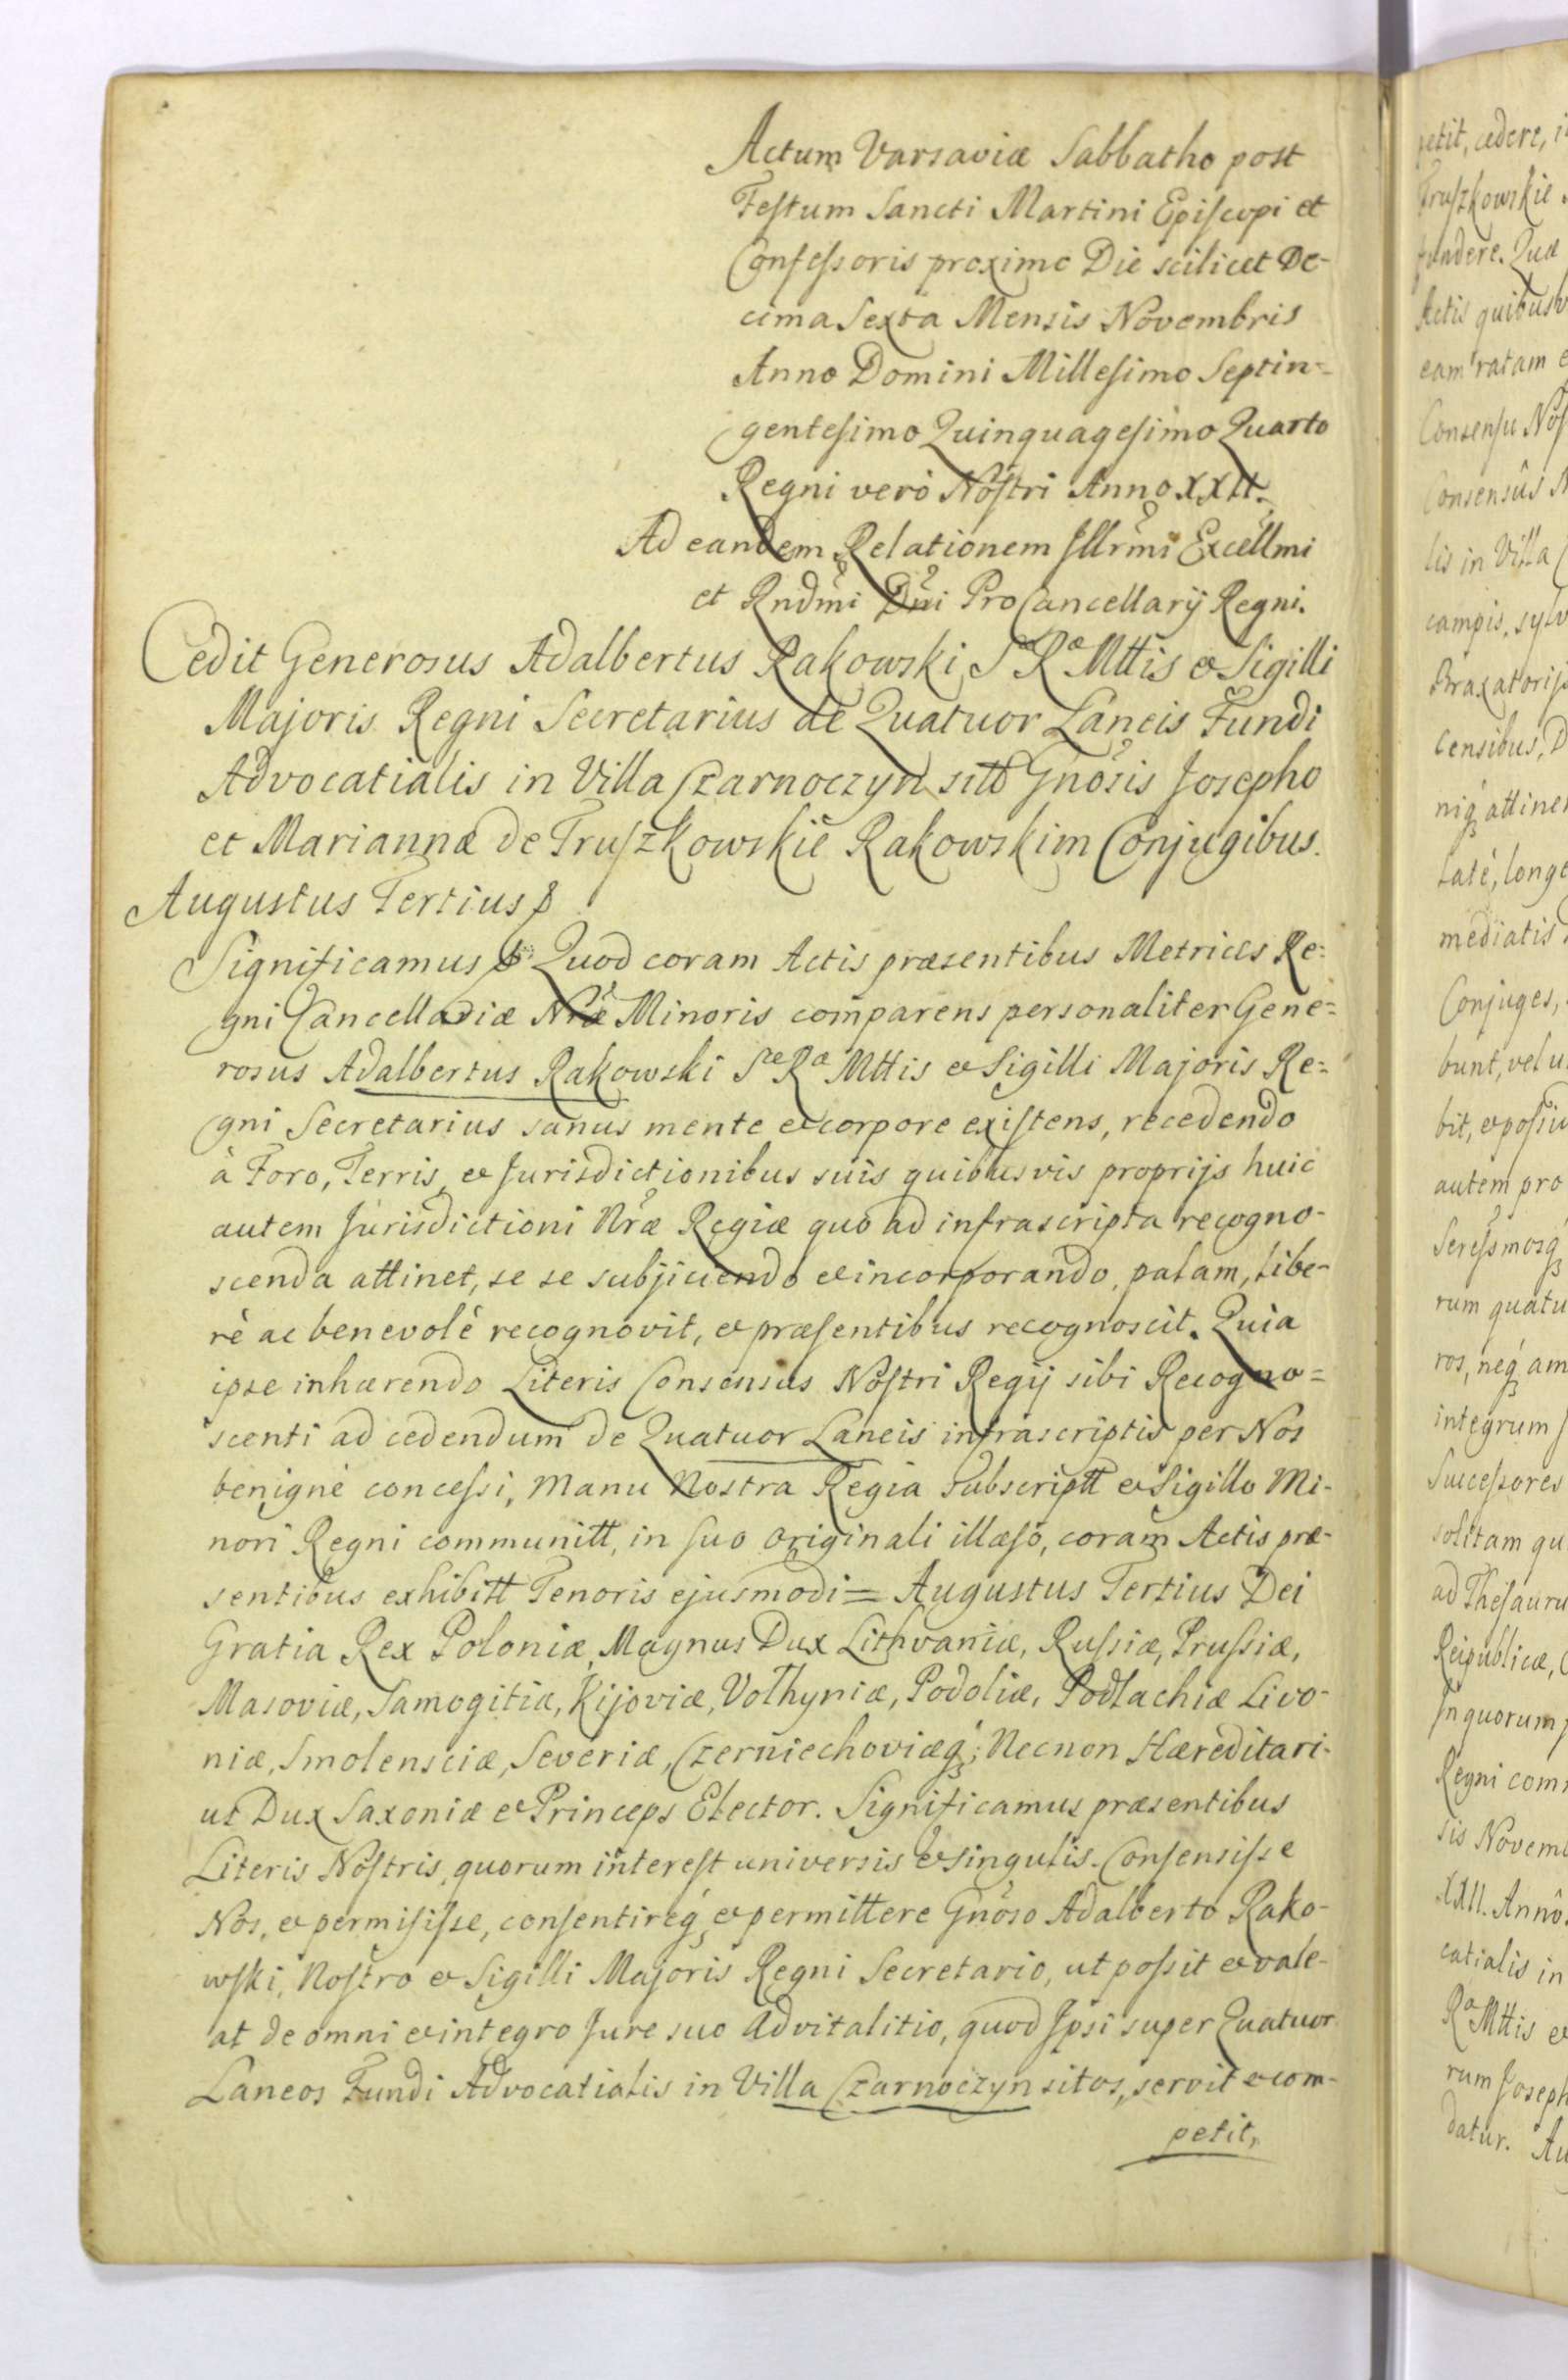 Actum Varsaviæ Sabbatho post
Festum Sancti Martini Episcopi et
Confessoris proximo Die scilicet De-
cima Sexta Mensis Novembris
Anno Domini Millesimo Septin-
gentesimo Quinquagesimo Quarto
Regni verò Nostri Anno XXII.
Ad eandem Relationem Illrmi Excellmi
et Rndmi Dni ProCancellarij Regni.
Cedit Generosus Adalbertus Rakowski Sæ Ræ Mttis et Sigilli
Majoris Regni Secretarius de Quatuor Laneis Fundi
Advocatialis in Villa Czarnoczyn sitt Gnosis Josepho
et Mariannæ de Truszkowskie Rakowskim Conjugibus.
Augustus Tertius
Significamus Quod coram Actis præsentibus Metrices Re-
gni Cancellariæ Nræ Minoris comparens personaliter Gene-
rosus Adalbertus Rakowski Sæ Ræ Mttis et Sigilli Majoris Re-
gni Secretarius sanus mente et corpore existens, recedendo
à Foro, Terris, et Jurisdictionibus suis quibusvis proprijs huic
autem Jurisdictioni Nræ Regiæ quo ad infrascripta recogno-
scenda attinet, se se subjiciendo et incorporando, palam, libe-
rè ac benevolè recognovit, et præsentibus recognoscit. Quia
ipse inhærendo Literis Consensus Nostri Regij sibi Recogno=
scenti ad cedendum de Quatuor Laneis infrascriptis per Nos
benignè concessi, Manu Nostra Regia subscriptt et Sigillo Mi-
nori Regni communitt, in suo originali illæso, coram Actis præ-
sentibus exhibitt Tenoris ejusmodi = Augustus Tertius Dei
Gratia Rex Poloniæ, Magnus Dux Lithvaniæ, Russiæ, Prussiæ,
Masoviæ, Samogitiæ, Kijoviæ, Volhyniæ, Podoliæ, Podlachiæ Livo-
niæ, Smolensciæ, Severiæ, Czerniechoviæq; Necnon Hæreditari-
us Dux Saxoniæ et Princeps Elector. Significamus præsentibus
Literis Nostris, quorum interest universis et singulis. Consensisse
Nos, et permisisse, consentireq et permittere Gnoso Adalberto Rako-
wski, Nostro et Sigilli Majoris Regni Secretario, ut possit et vale-
at de omni et integro Jure suo Advitalitio, quod Ipsi super Quatuor
Laneos Fundi Advocatialis in Villa Czarnoczyn sitos, servit et com-
petit,
petit, cedere,
Truszkowskie
fundere. Quæ
Actis quibusv
eam ratam e
Consensu Nos
Consensûs N
lis in Villa C
campis, sylv
Braxatorijs
Censibus, D
niq attinen
latè, longe
mediatis
Conjuges,
bunt, vel u
bit, et possid
autem pro
Serissmosq
rum quatu
ros, neq am
integrum
Successores
solitam qu
ad Thesauru
Reipublicæ,
In quorum
Regni com
sis Novem
XXII. Annô.
catialis in
Ræ Mttis et
rum Joseph
datur. Au